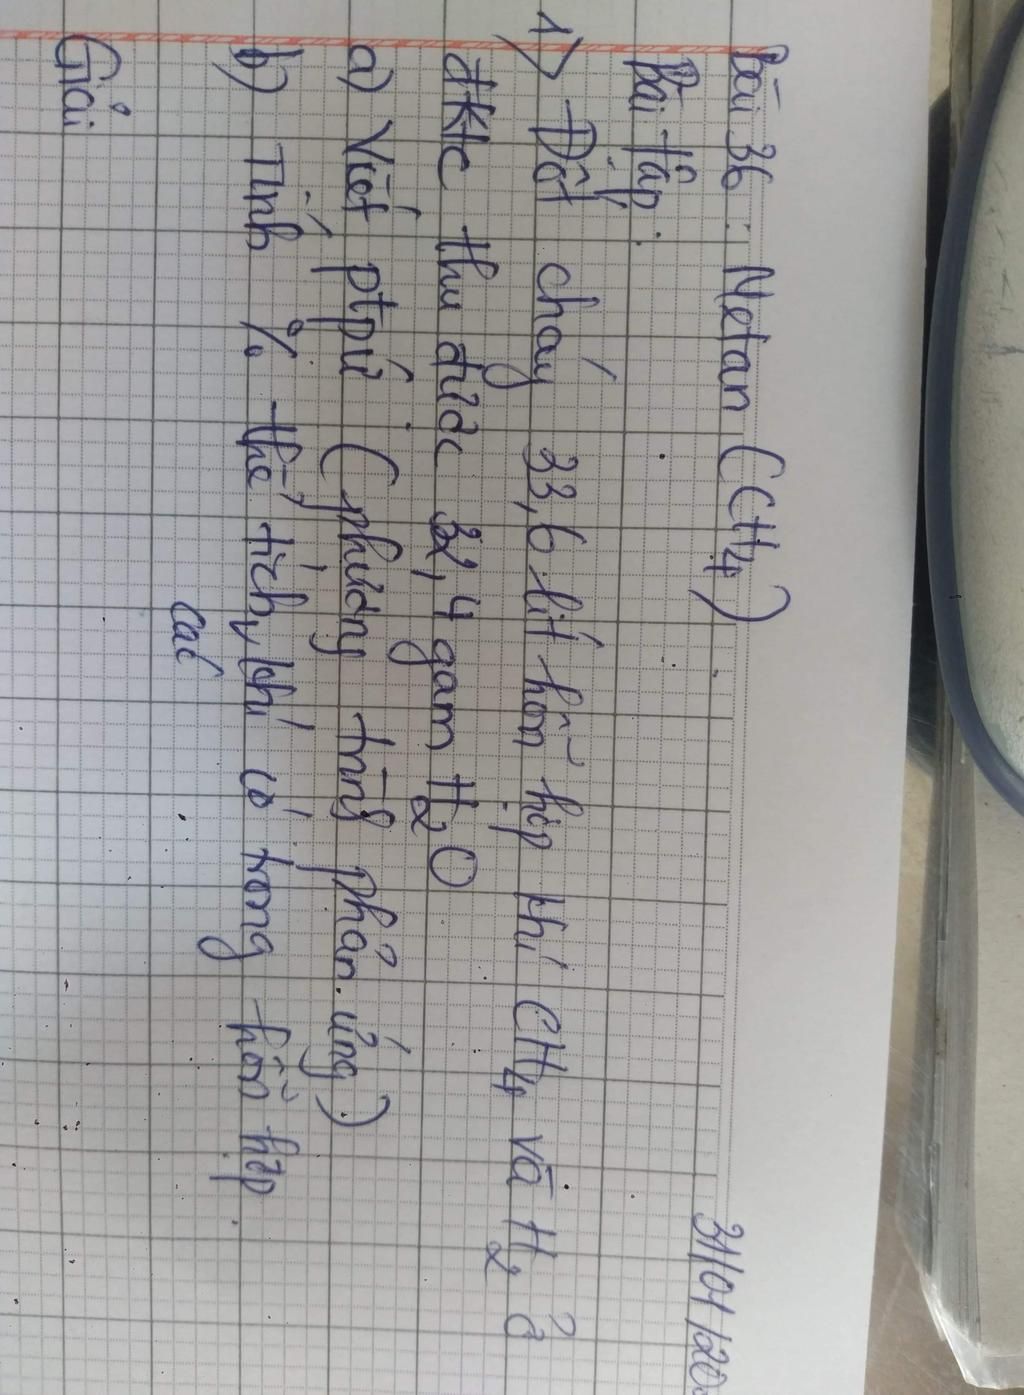 31/01/20
Bài 36: Metan (CH4)
Bài tập:
1) Đốt cháy 33,6 lít hỗn hợp khí CH4 và H2 ở
đktc thu được 32,4 gam H2O
a) Viết ptpứ (phương trình phản ứng)
b) Tính % thể tích các khí có trong hỗn hợp
Giải